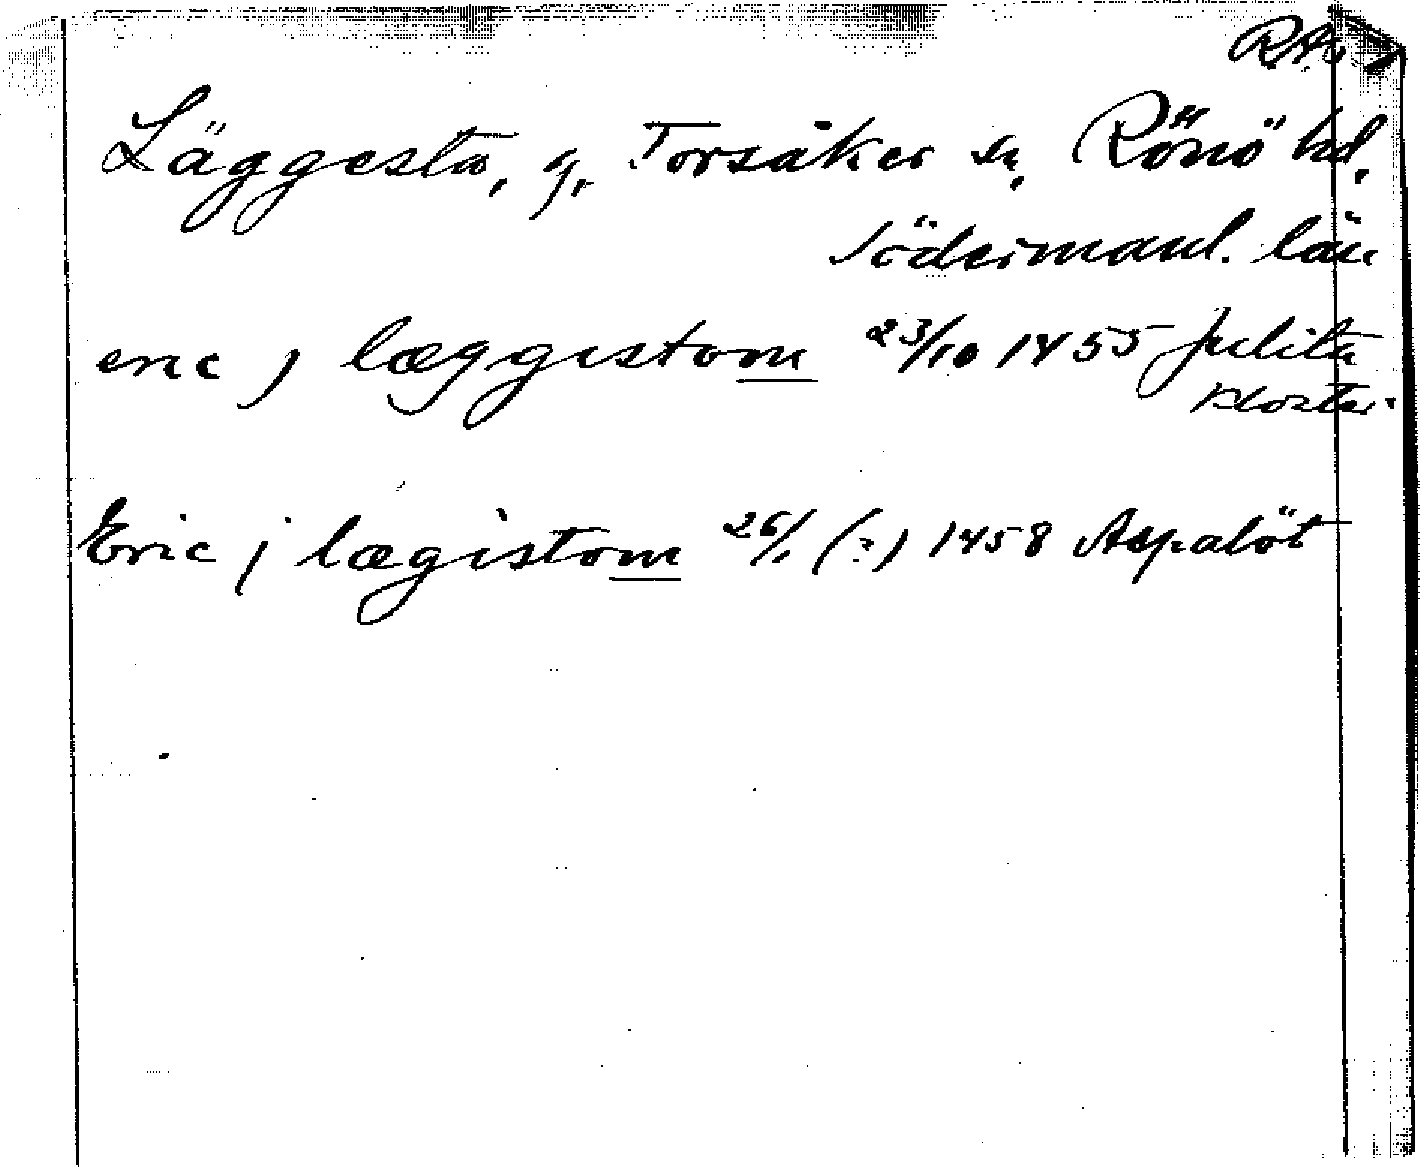 RAp
Läggesta, g, Torsåker sn, Rönö hd,
Södermanl. län
eric j læggistom 23/10 1455 Julita
kloster.
Eric j lægistom 26/1 (?) 1458 Aspalöt